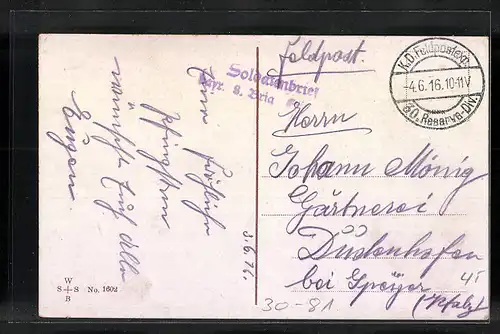 Feldpost.
Soldatenbrief
Bayr. 8. Brig
K.D. Feldpostexp.
-4.6.16.10-11V
Reserve-Div.
Herrn
Johann Mönig
Gärtnerei
Dudenhofen
bei Speyer
(Pfalz)
45
Fröhliche
Pfingsten
wünscht Euch allen
Eugen
3.6.16.
W
S+S No. 1602
B
30-81